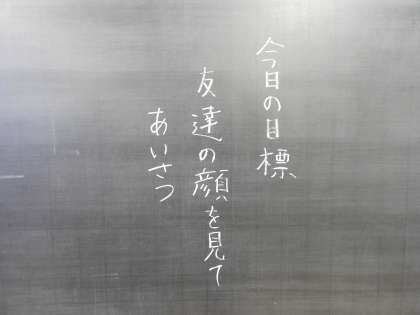 今日の目標
友達の顔を見て
あいさつ